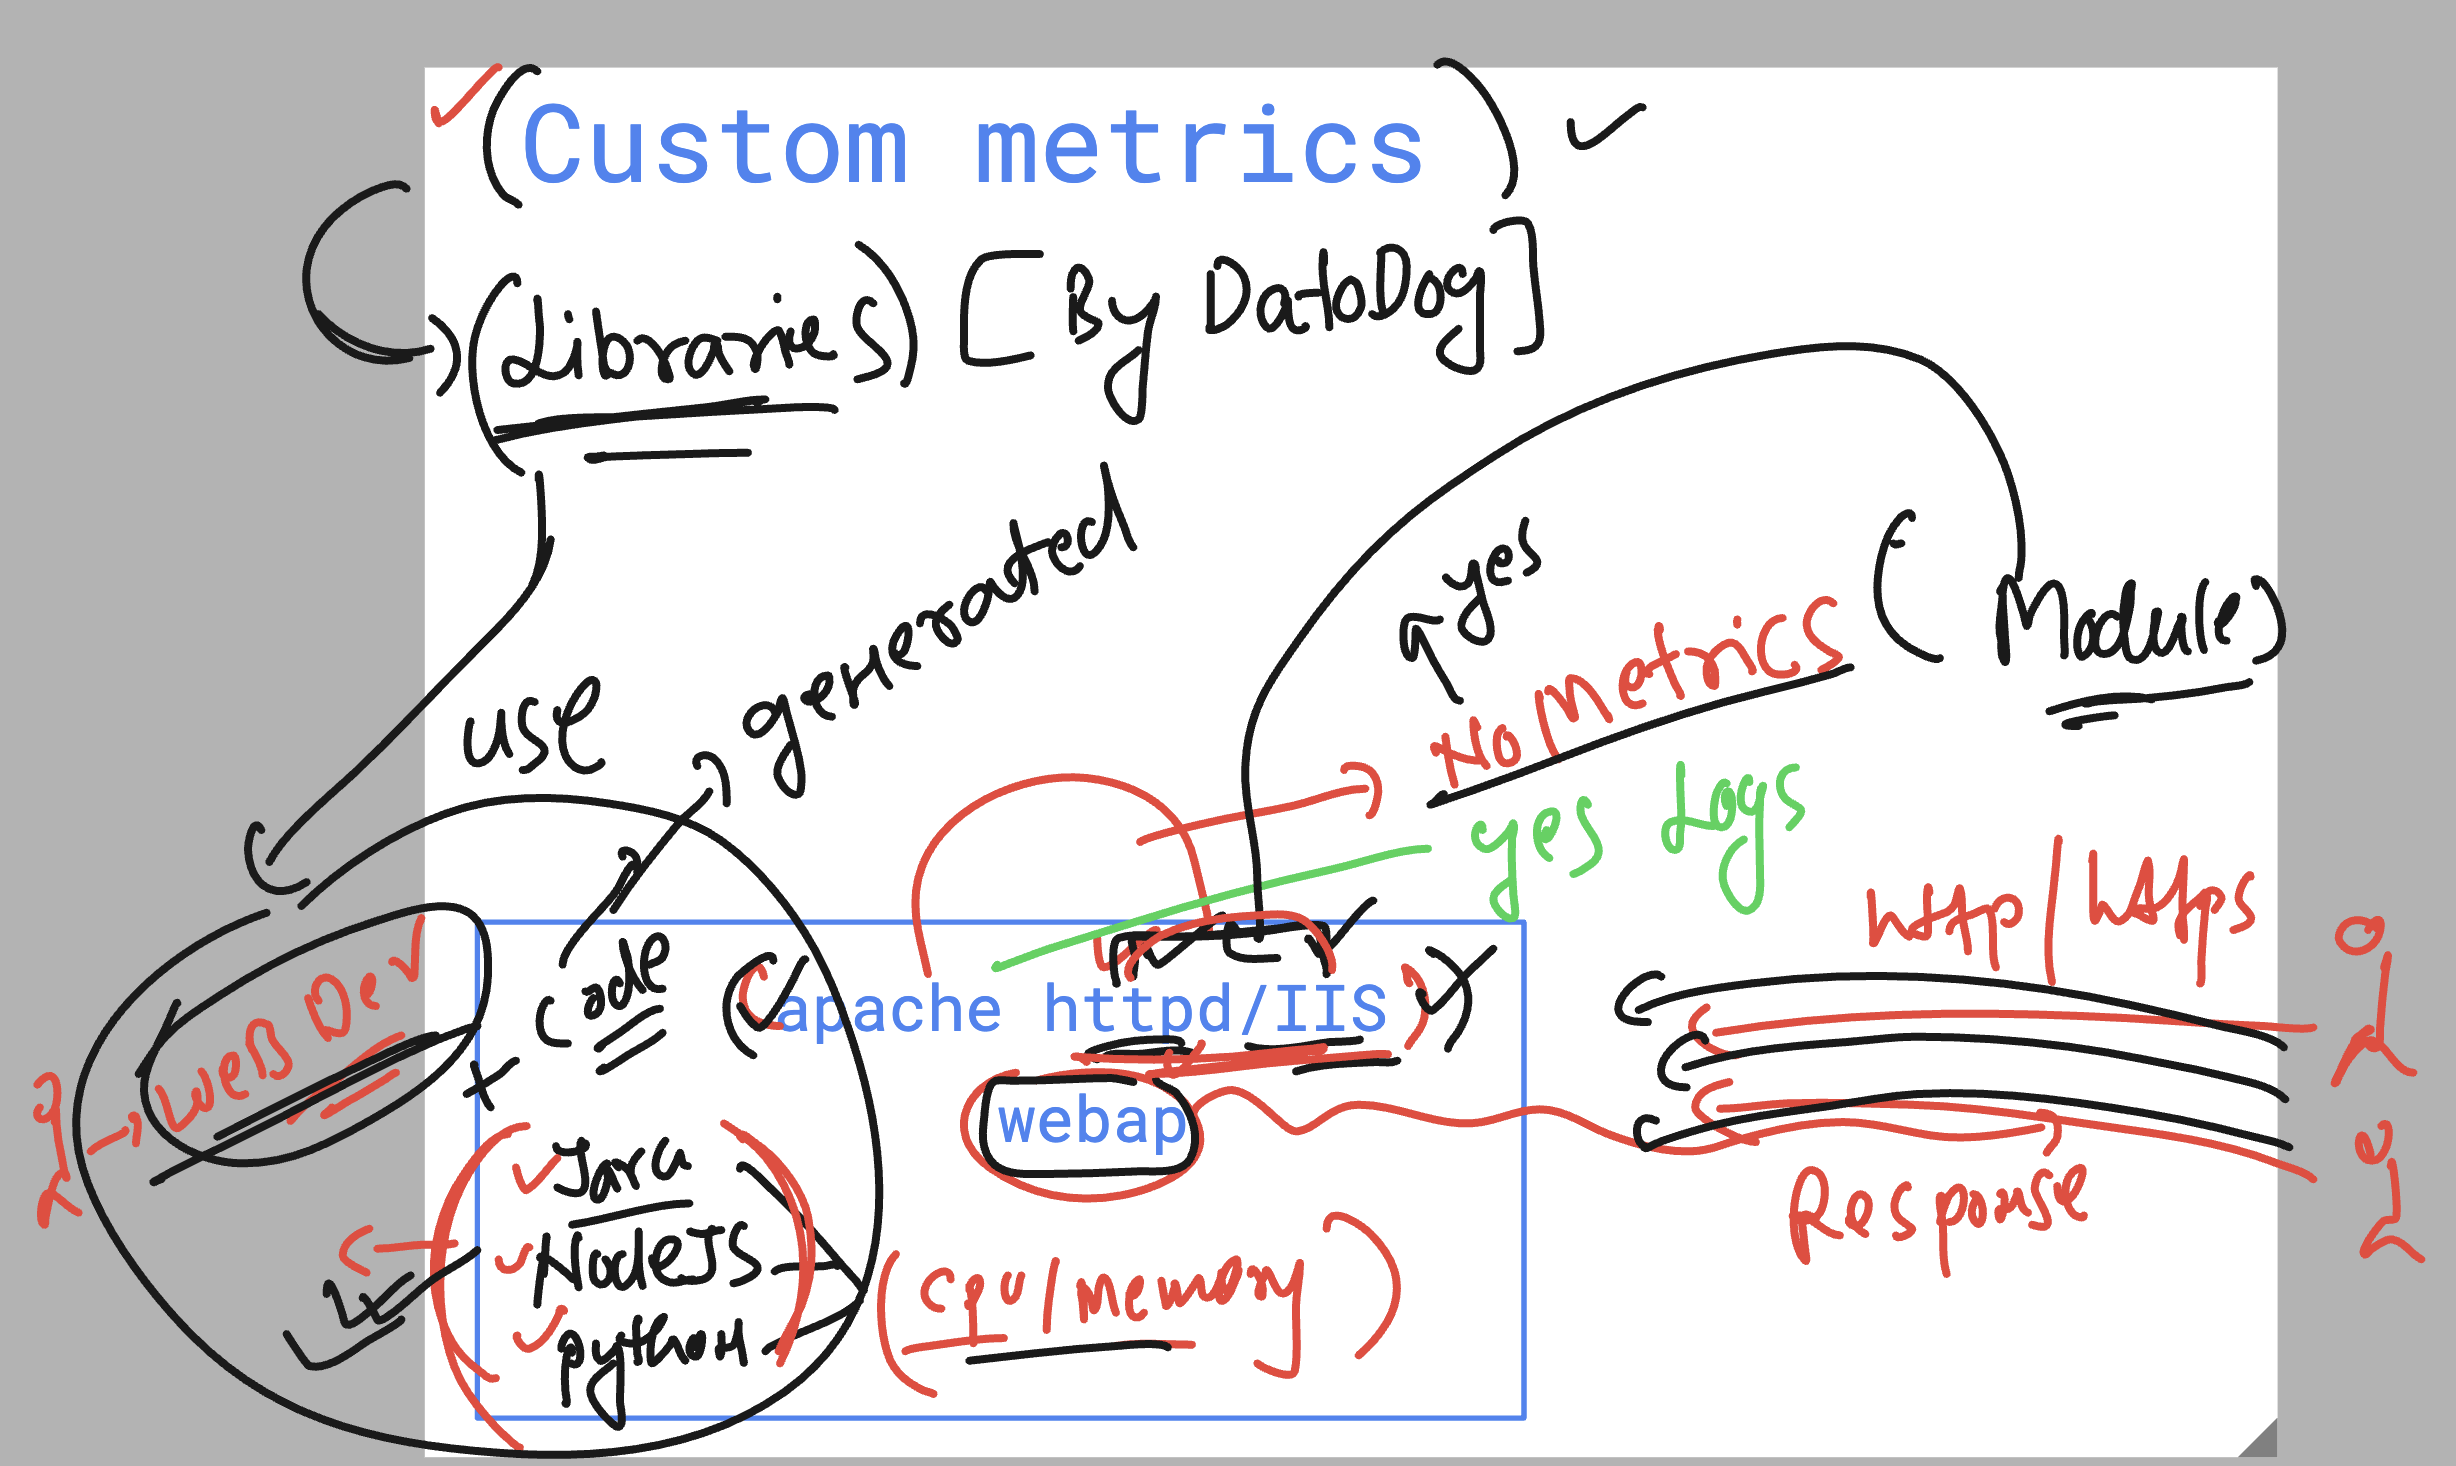 Custom metrics
(Libraries) [By DataDog]
generated
use
yes
No Metrics (Modules)
yes Logs
http/https
Code
apache httpd/IIS
Web Dev
webap
Java
NodeJS
python
cpu/memory
Response